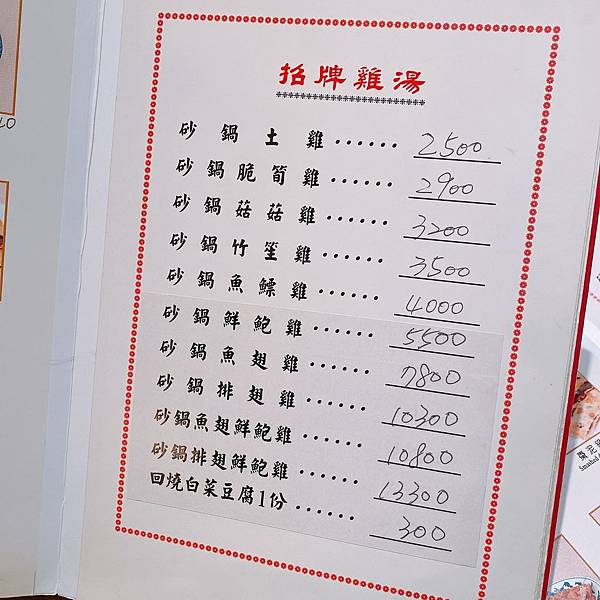 招牌雞湯
砂鍋土雞······ 2500
砂鍋脆筍雞······ 2900
砂鍋菇菇雞······ 3200
砂鍋竹笙雞······ 3500
砂鍋魚鰾雞······ 4000
砂鍋鮮鮑雞······ 5500
砂鍋魚翅雞······ 7800
砂鍋排翅雞······ 10300
砂鍋魚翅鮮鮑雞······ 10800
砂鍋排翅鮮鮑雞······ 13300
回燒白菜豆腐1份······ 300